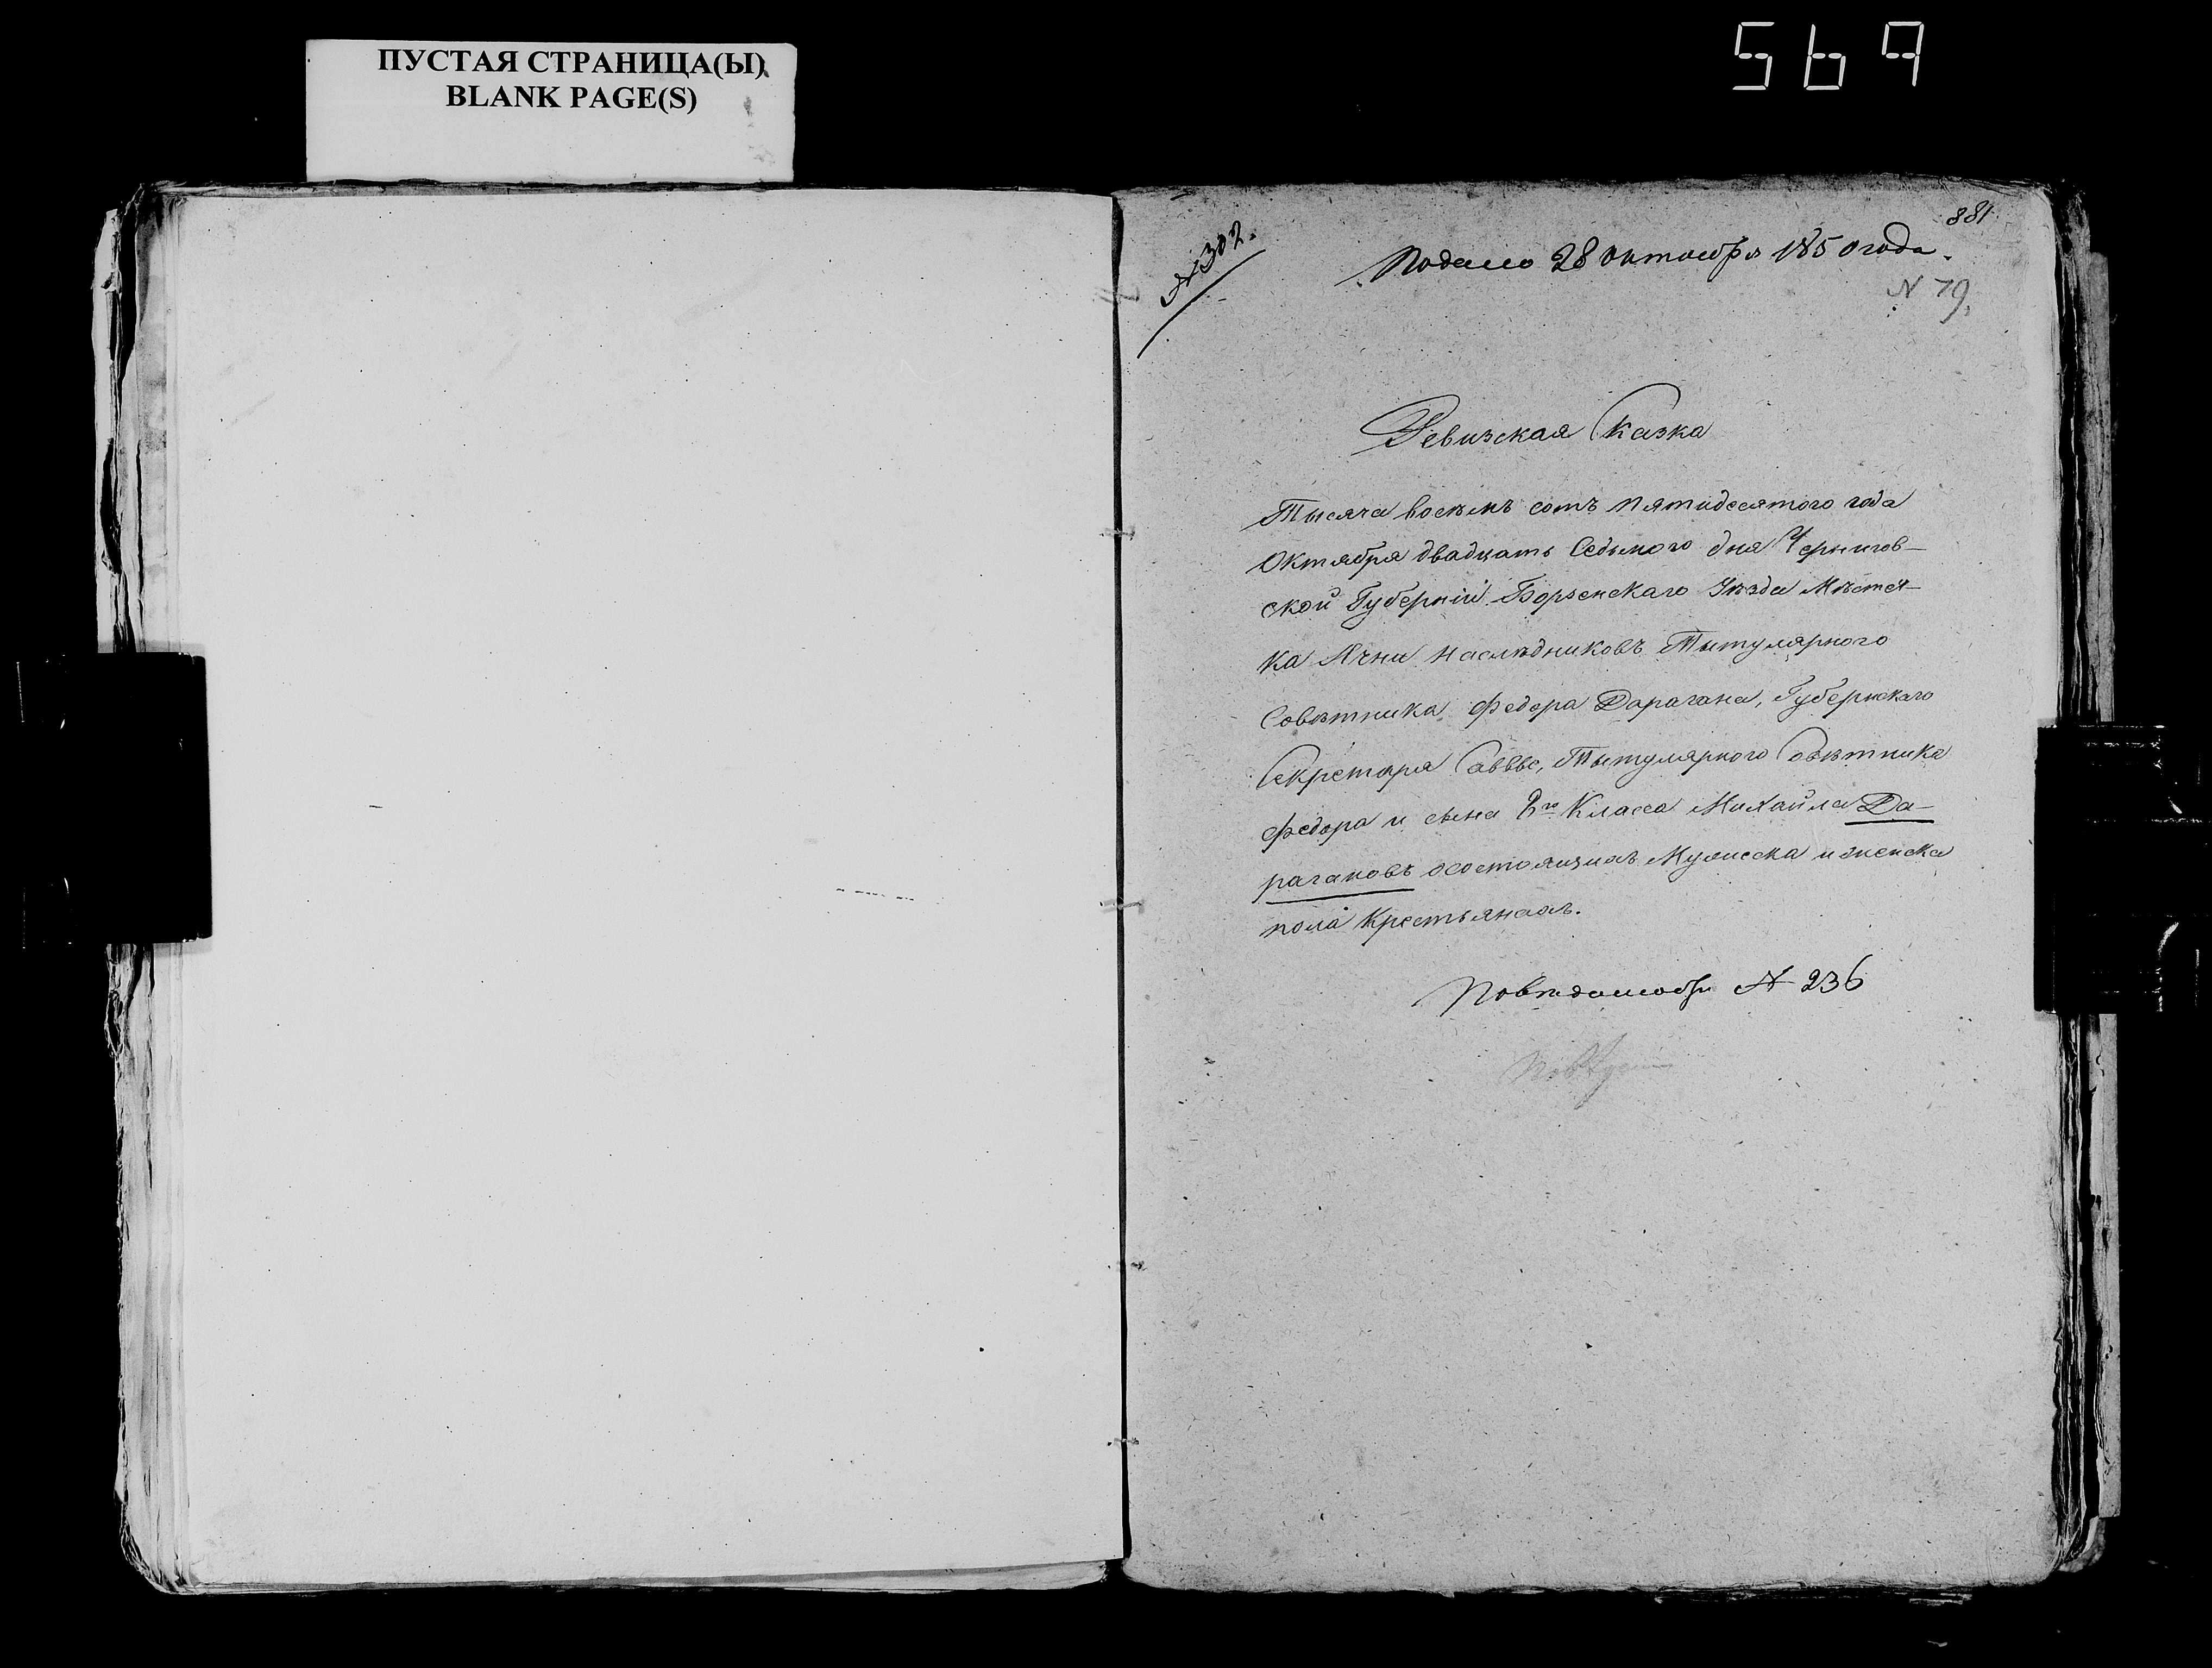 ПУСТАЯ СТРАНИЦА(Ы)
BLANK PAGE(S)
569
881
№ 302.
Подано 28 октября 1850 года.
N 79.
Ревизская Сказка
Тысяча восемь сотъ пятидесятого года
Октября двадцать Седьмого дня Чернигов-
ской Губерніи Борзенскаго Уезда Местеч-
ка Ични Наследниковъ Титулярного
Советника Федора Дарагана, Губернскаго
Секретаря Саввы, Титулярного Советника
Федора и сына 8го Класса Михайла Да-
рагановъ о состоящихъ Мужеска и женска
пола Крестьянахъ.
№ 236